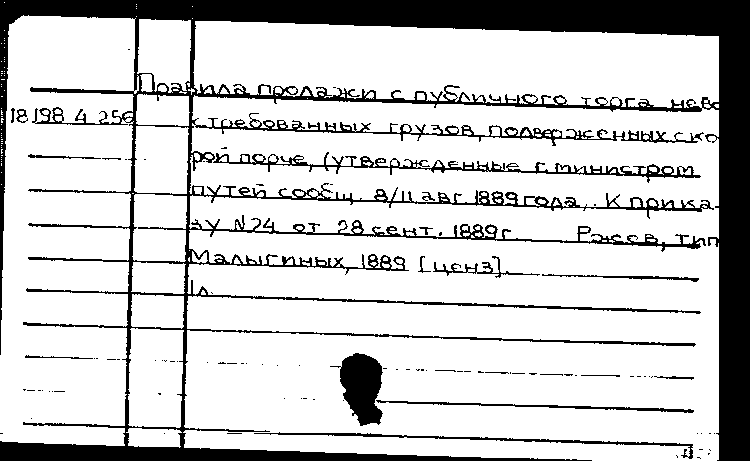 Правила продажи с публичного торга нево
18198 4 256 стребованных грузов, подверженных ско-
рой порче, (утвержденные г. министром
путей сообщ. 8/11 авг 1889 года,. К прика-
зу N24 от 28 сент. 1889г Ржев, тип
Малыгиных, 1889 [ценз].
1л.